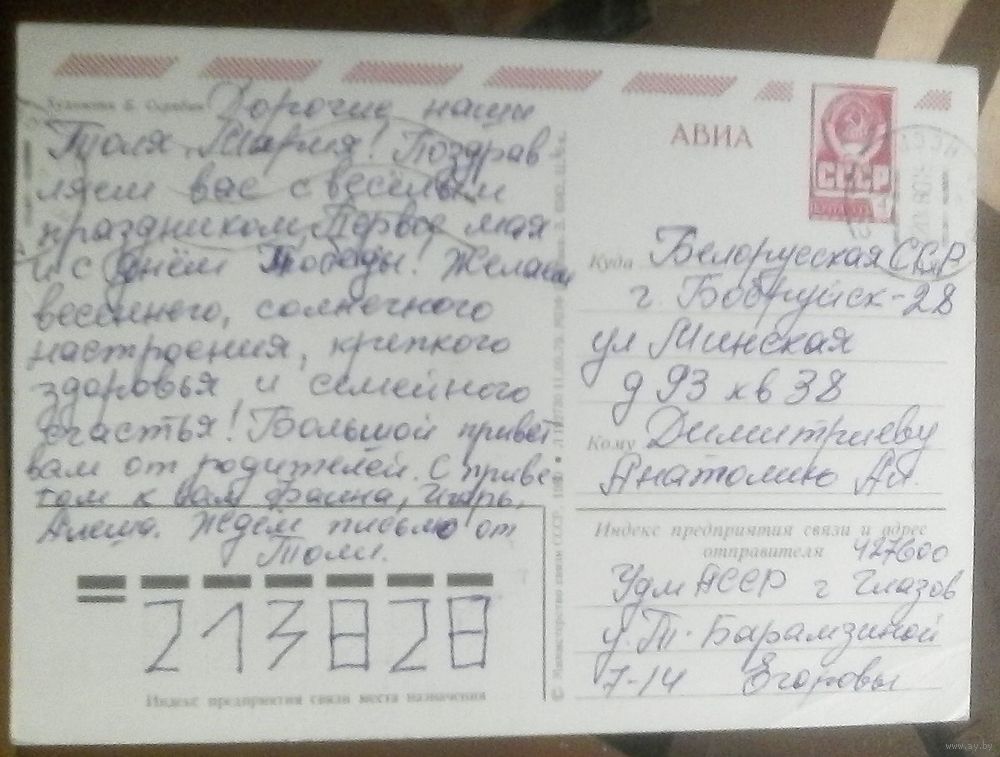 Художник Б. Скрябин
Дорогие наши
Толя, Мария! Поздрав
ляем вас с весёлым
праздником Первое мая
и с Днём Победы! Желаем
весеннего, солнечного
настроения, крепкого
здоровья и семейного
счастья! Большой привет
вам от родителей. С приве
том к вам Фаина, Игорь,
Алеша. Ждём письмо от
Толи.
213828
Индекс предприятия связи места назначения
© Министерство связи СССР.
АВИА
СССР
Куда Белорусская ССР
г. Бобруйск-28
ул Минская
д 93 кв 38
Кому Димитриеву
Анатолию Ал.
Индекс предприятия связи и адрес
отправителя 427600
Удм АССР г Глазов
у. Т. Барамзиной
7-14 Егоровы
www.ay.by